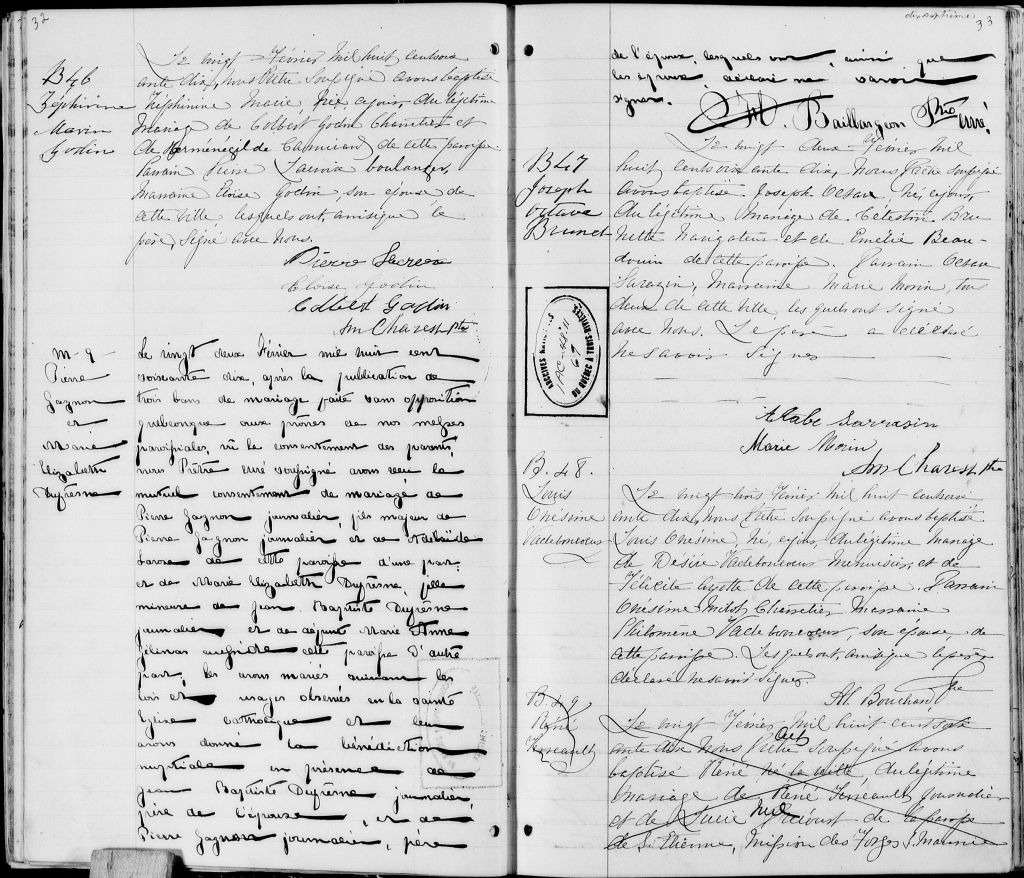 32
B 46
Zéphirine
Marie
Godin
Le vingt Février Mil huit cent soix
ante dix, nous Prêtre soussigné avons baptisé
Zéphirine Marie Née, ce jour, du légitime
Mariage de Colbert Godin Charretier et
de Herménégilde de cette paroisse
Parrain Pierre Lacroix boulanger,
Marraine Eloïse Godin, son épouse de
cette ville lesquels ont, ainsi que le
père, signé avec nous.
Pierre Lacroix
Eloise Godin
Colbert Godin
Am Charest Ptre
M - 9 -
Pierre
Gagnon
et
Marie
Elizabeth
Dufresne
Le vingt deux Février mil huit cent
soixante dix, après la publication de
trois bans de mariage faite sans opposition
quelconque aux prônes de nos messes
paroissiales, vu le consentement des parents,
nous Prêtre curé soussigné avons reçu le
mutuel consentement de mariage de
Pierre Gagnon journalier, fils majeur de
Pierre Gagnon journalier et de Adélaïde
de cette paroisse d'une part,
et de Marie Elizabeth Dufresne, fille
mineure de Jean Baptiste Dufresne
journalier et de défunte Marie Anne
Gélinas aussi de cette paroisse D'autre
part, les avons mariés suivant les
lois et usages observés en la sainte
Eglise catholique et leur
avons donné la bénédiction
nuptiale en présence de
Jean Baptiste Dufresne journalier,
père de l'épouse, et de
Pierre Gagnon journalier, père
dix septième
33
de l'époux, lesquels ont, ainsi que
les époux déclaré ne savoir
signer.
M. Baillargeon Ptre Curé.
B 47
Joseph
Octave
Brunet
Le vingt deux Février Mil
huit cent soixante dix, Nous Prêtre soussigné
avons baptisé Joseph Octave, né, ce jour,
du légitime Mariage de Célestin Bru
nette Navigateur et de Emélie Beau-
douin de cette paroisse. Parrain Octave
Sarasin, Marraine Marie Morin, tous
deux de cette ville, lesquels ont signé
avec Nous. Le père a déclaré
ne savoir signer
ARCHIVES NATIONALES
DU QUÉBEC À TROIS-RIVIÈRES
67
Sarrasin
Marie Morin
Am Charest Ptre
B. 48.
Louis
Onésime
Vadeboncoeur
Le vingt trois Février Mil huit cent soix
ante dix, Nous Prêtre soussigné avons baptisé
Louis Onésime, né, ce jour, du légitime Mariage
de Désiré Vadeboncoeur Menuisier, et de
Félicité Ayotte de cette paroisse. Parrain
Onésime Milot Charretier Marraine
Philomène Vadeboncoeur, son épouse de
cette paroisse. Lesquels ont, ainsi que le père,
déclaré ne savoir signer
Al. Bouchard Ptre
B. 49
René
Héreault
Le vingt Février Mil huit cent soix
ante dix Nous Prêtre soussigné avons
baptisé René né la veille, du légitime
Mariage de René Journalier
et de Lucie de la paroisse
de St Etienne, Mission des Forges St Maurice